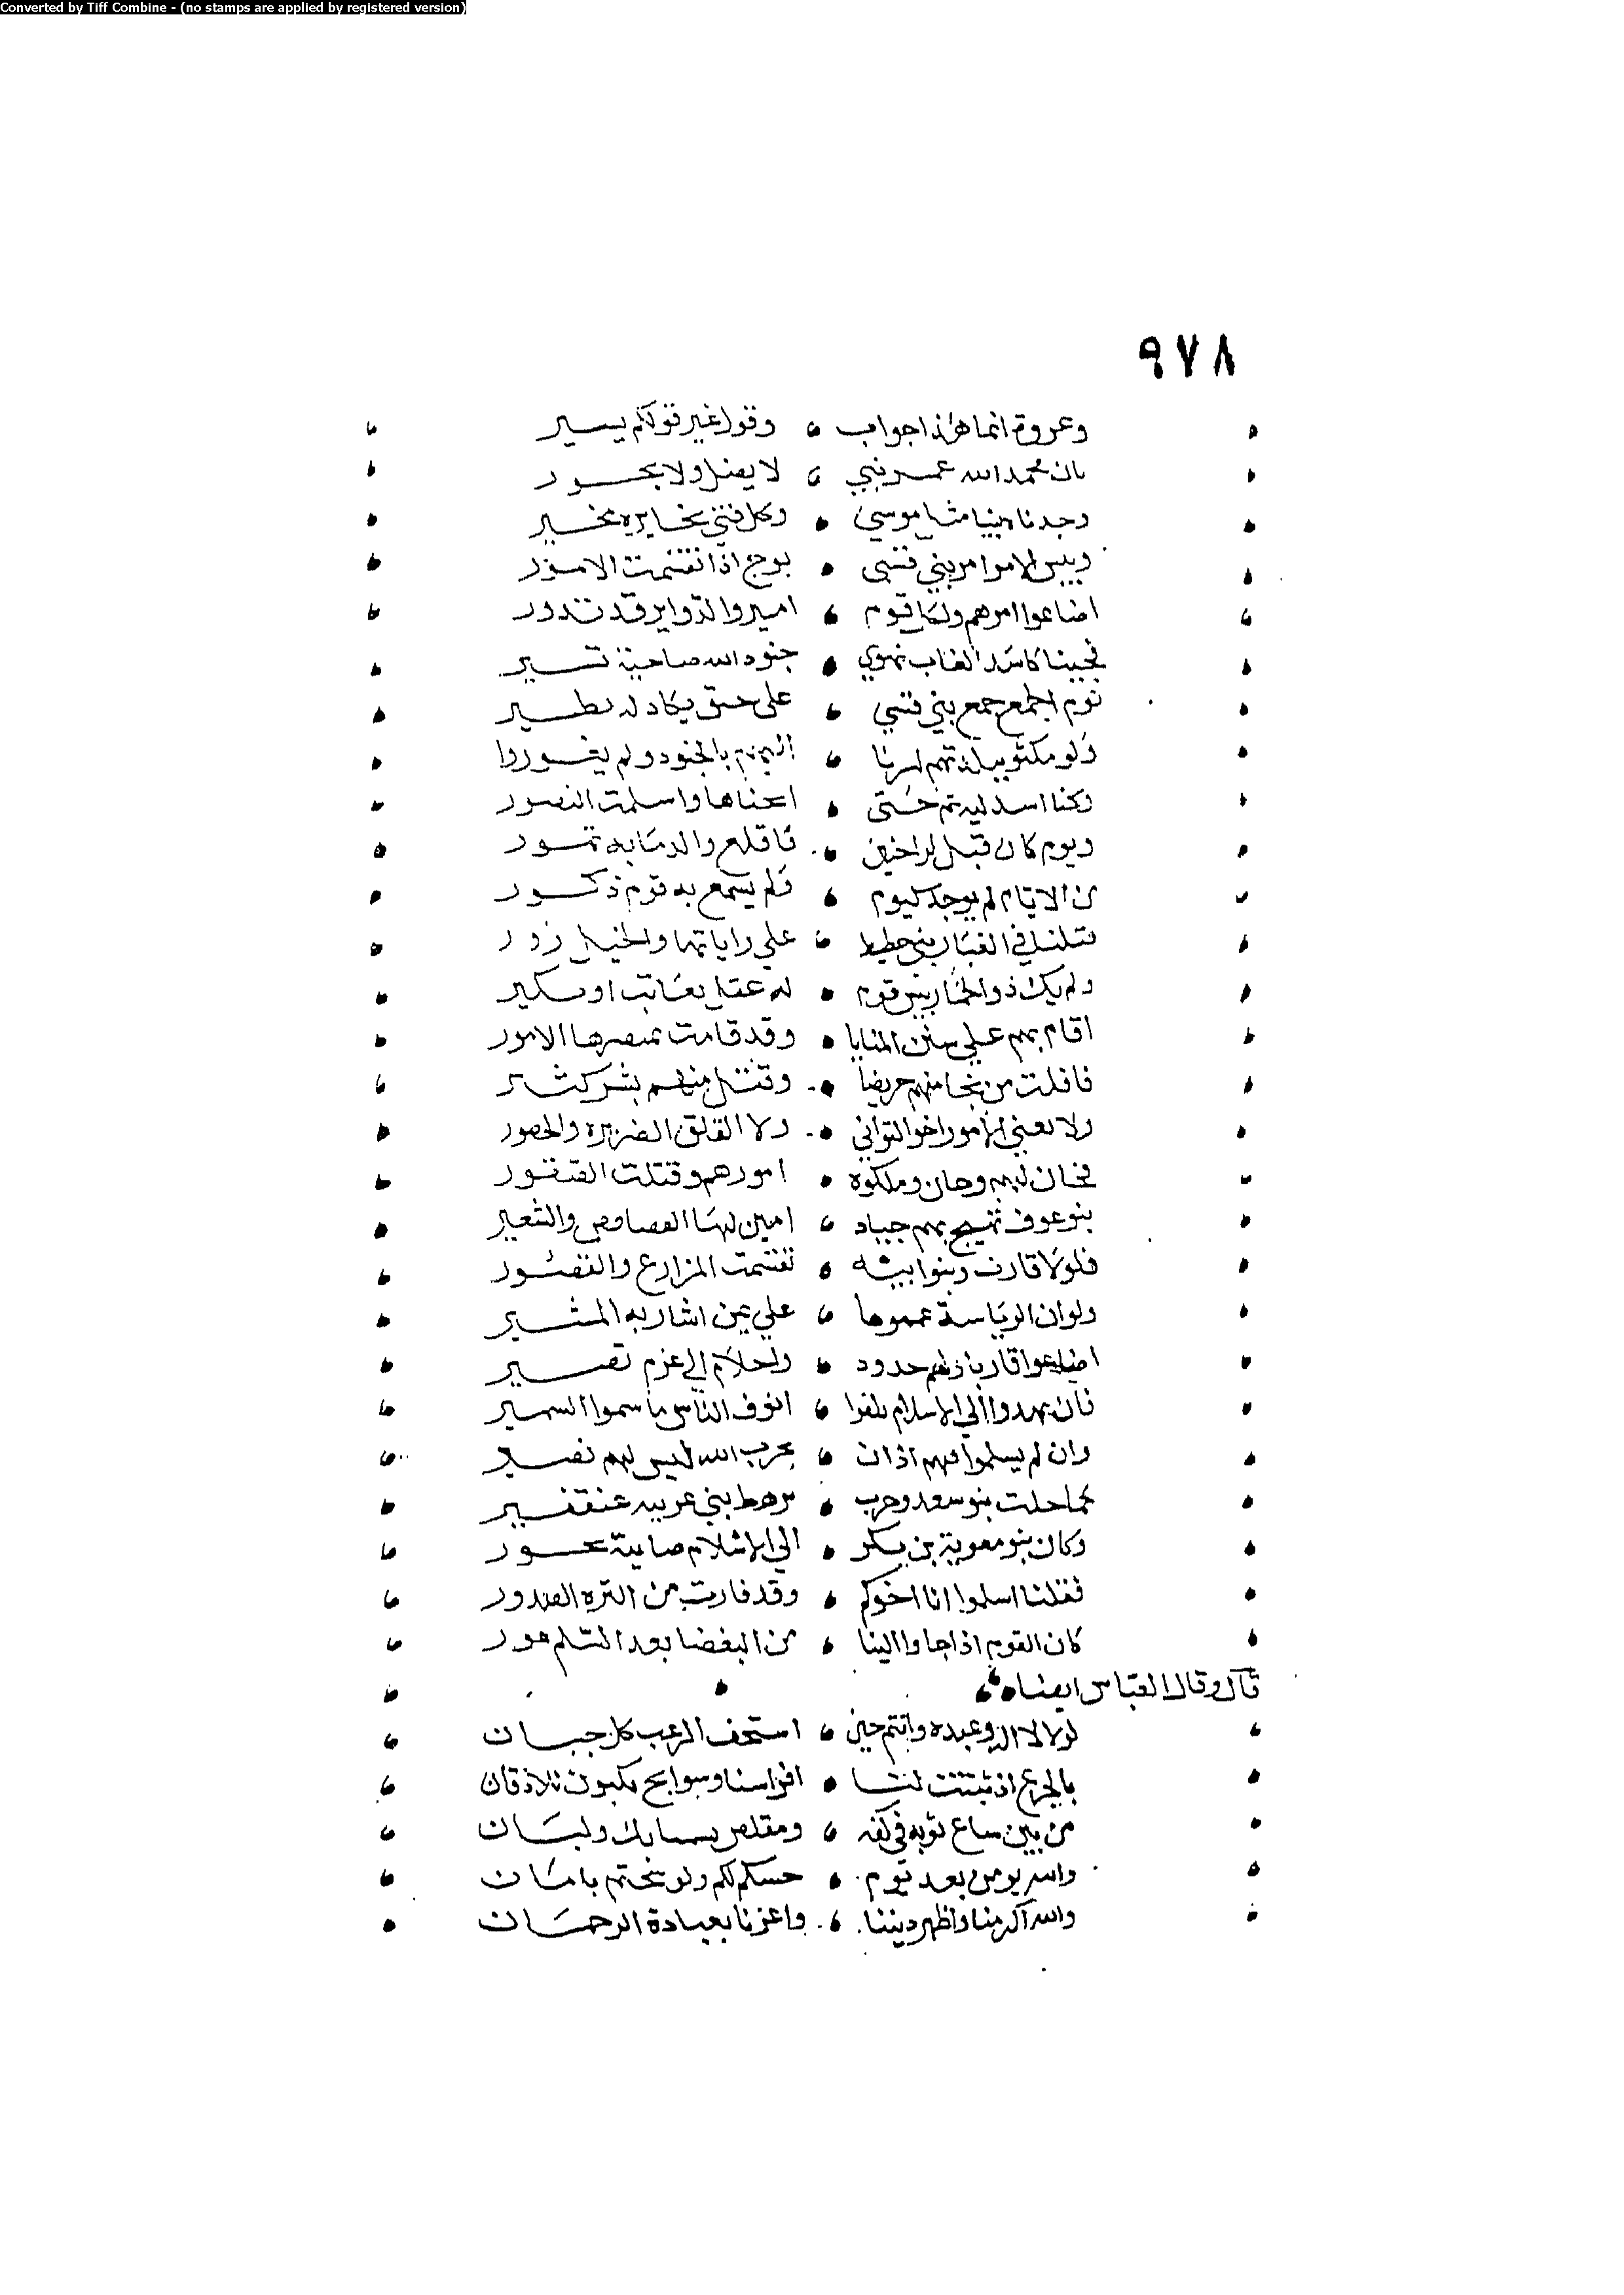 Converted by Tiff Combine - (no stamps are applied by registered version)
٩٧٨
وعروة انما هذا جواب وقول غير قولكم يسير
بان محمدا لله عبد نبي لا يضل ولا يجور
وجدنا نبيا مثل موسى وكل فتى يخايره مخير
وبيس الامر امر بني قسي بوج اذا تقسمت الامور
اضاعوا امرهم ولكل قوم امير والدواير قد تدور
فجينا كاسد الغاب نهوي جنود الله ضاحية تسير
نوم الجمع جمع بني قسي على حنق يكاد له يطير
ولو مكثوا ببلدتهم لسرنا اليهم بالجنود ولم يغوروا
وكنا اسد لية ثم حتى ابحناها واسلمت النصور
ويوم كان قبل لدا حنين فاقلع والدما به تمور
من الايام لم يوجد كيوم ولم يسمع به قوم ذكور
في الغبار بني حطيط علي راياتها والخيل زور
ولم يك ذو الخمار ريس قوم له عقل يعاتب او نكير
اقام بهم علي سنن المنايا وقد قامت بمبصرها الامور
فافلت من نجا منهم حريضا وقتل منهم بشر كثير
ولا يغني الامور اخو التواني ولا الغلق الضريره والحصور
فخان لهم وحان وملكوه امورهم وقتلت الصقور
بنو عوف تميح بهم جياد اهين لها الفصافص والشعير
فلولا قارب وبنوا ابيه تقسمت المزارع والقصور
ولو ان الرياسة عمموها علي يمن اشار به المشير
اضاعوا قاربا ولهم جدود واحلام الي عزم تصير
فان يهدوا الي الاسلام يلفوا انوف الناس ما سموا السمير
وان لم يسلموا فهم اذان بحرب الله ليس لهم نصير
كما حلت بنو سعد وحرب برهط بني عزيه عنقفير
وكان بنو معوية بن بكر الي الاسلام ضاينة تخور
فقلنا اسلموا انا اخوكم وقد فارت من التره الصدور
كان القوم اذا جاوا الينا من البغضا بعد السلم عور
قال وقال العباس ايضا
لولا الاله وعبده وليتم حين استخف الرعب كل جبان
بالجزع اذ لنا اقراسنا وسوابح يكبون للاذقان
من بين ساع ثوبه في كفه ومقلص بسنابك ولبان
والله اكرمنا واظهر ديننا واعزنا بعبادة الرحمان